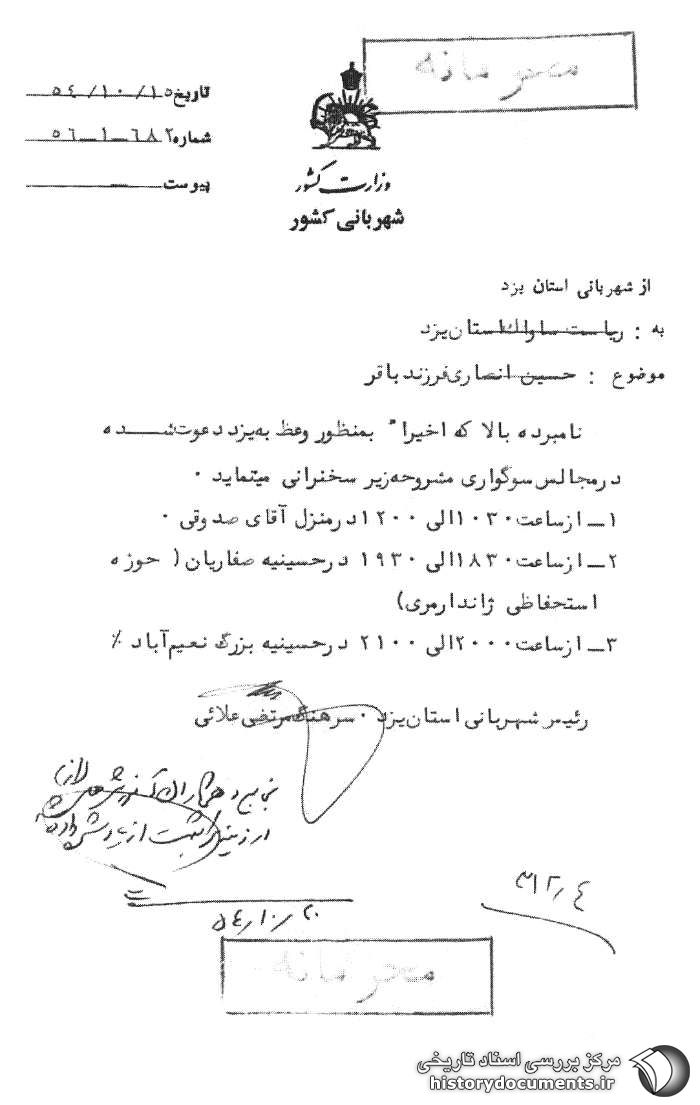 محرمانه
تاریخ ۵۴/۱۰/۱۵
شماره ۵۶-۱-۶۸۲
پیوست —
وزارت کشور
شهربانی کشور
از شهربانی استان یزد
به : ریاست ساواک استان یزد
موضوع : حسین انصاری فرزند باقر
نامبرده بالا که اخیراً بمنظور وعظ به یزد دعوت شده
در مجالس سوگواری مشروحه زیر سخنرانی مینماید ۰
۱ـ از ساعت ۱۰۳۰ الی ۱۲۰۰ در منزل آقای صدوقی ۰
۲ـ از ساعت ۱۸۳۰ الی ۱۹۳۰ در حسینیه صفاریان ( حوزه
استحفاظی ژاندارمری)
۳ـ از ساعت ۲۰۰۰ الی ۲۱۰۰ در حسینیه بزرگ نعیم‌آباد ٪
رئیس شهربانی استان یزد ۰ سرهنگ مرتضی علائی
۳۱۲/۴
۵۴/۱۰/۲۰
محرمانه
مرکز بررسی اسناد تاریخی
historydocuments.ir